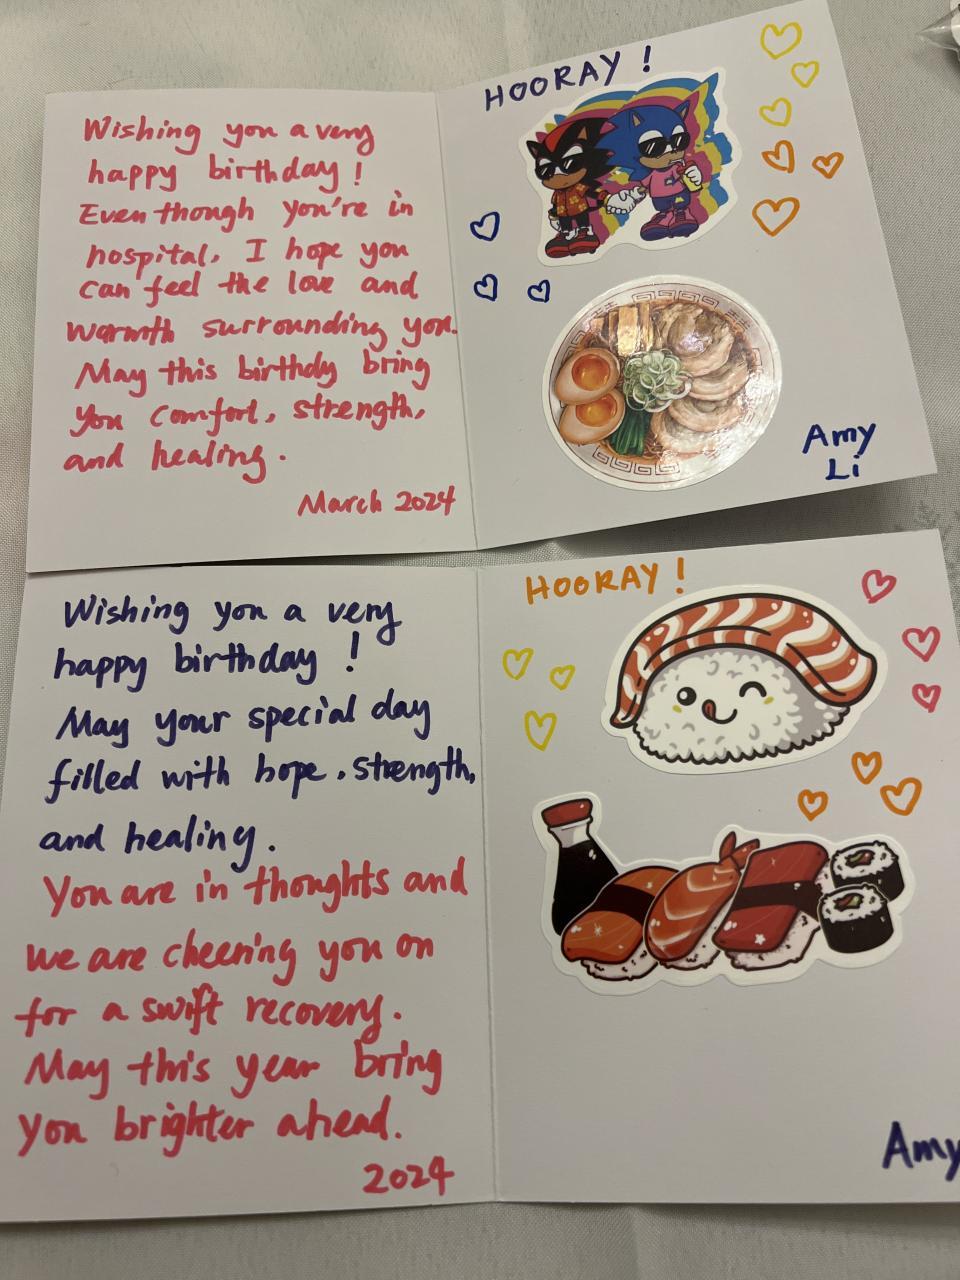 Wishing you a very
happy birthday!
Even though you're in
hospital, I hope you
can feel the love and
warmth surrounding you.
May this birthdy bring
you comfort, strength,
and healing.
March 2024
HOORAY!
Amy
Li
Wishing you a very
happy birthday!
May your special day
filled with hope, strength,
and healing.
You are in thoughts and
we are cheering you on
for a swift recovery.
May this year bring
you brighter ahead.
2024
HOORAY!
Amy